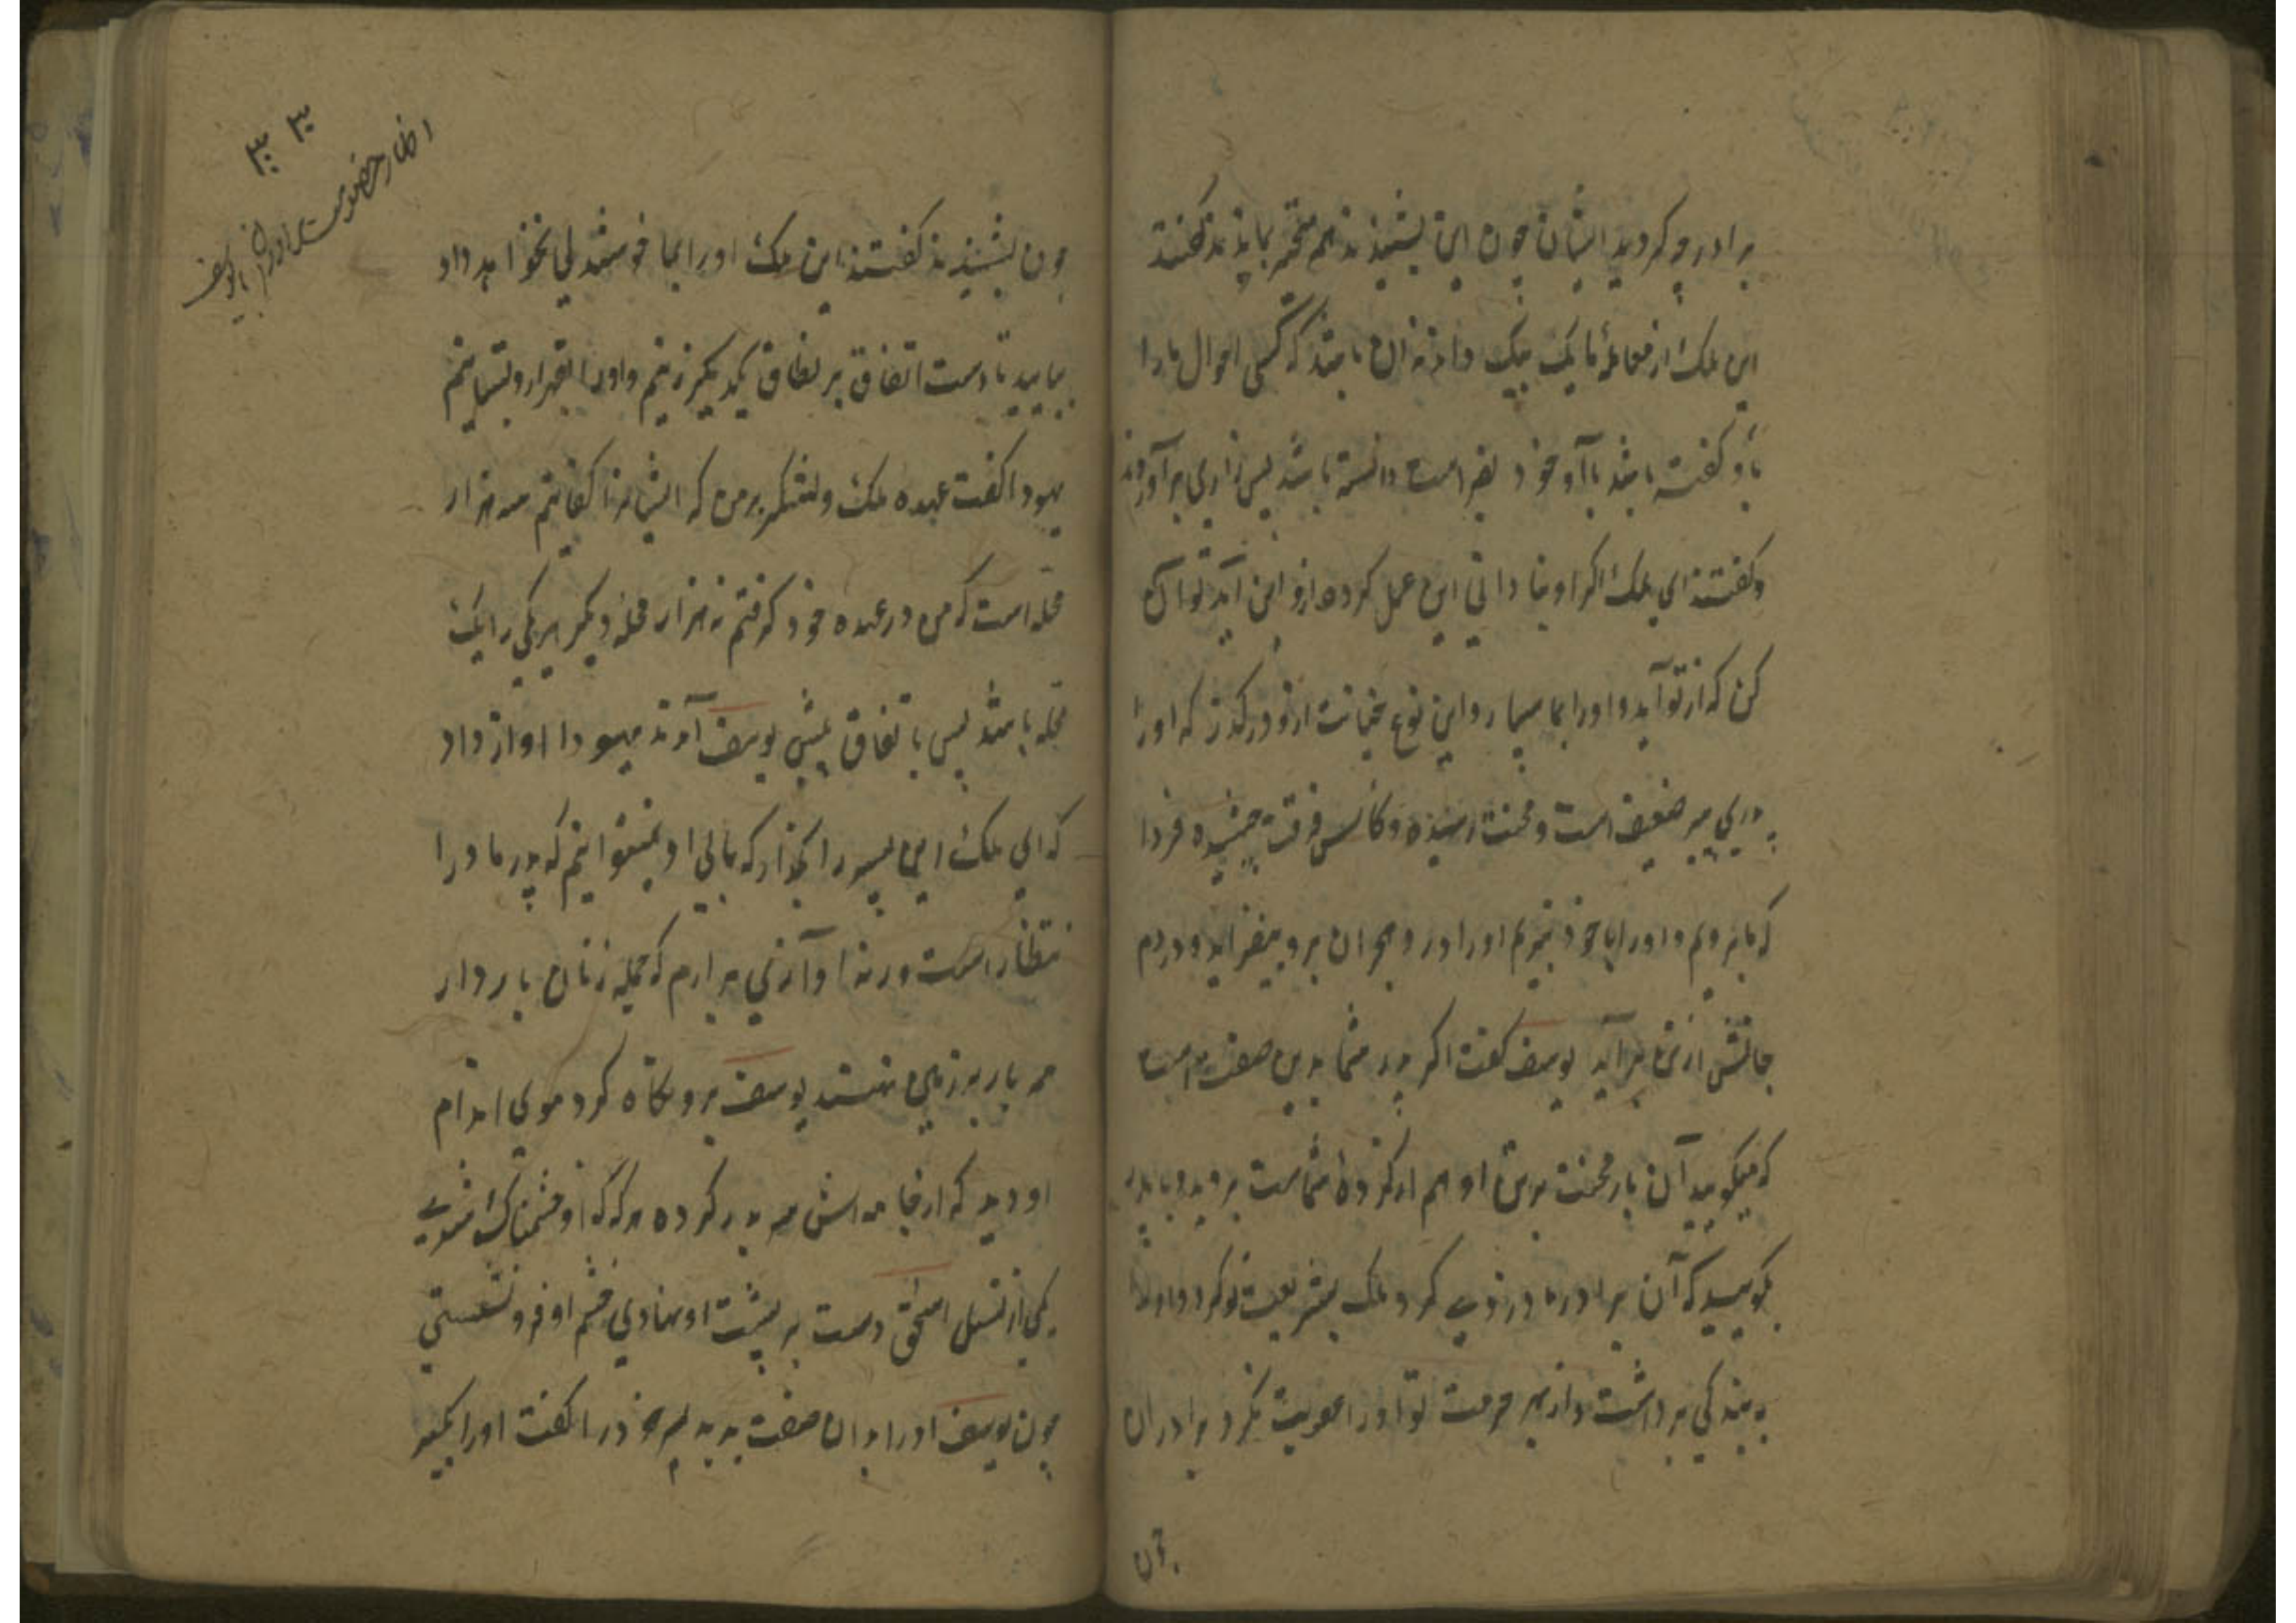 برادر چه کردید ایشان چون این بشنیدند هم متحیر بماندند گفتند
این ملک از معاملهٔ ما یک بیک داند نه آن باشد که کسی احوال ما را
باو گفته باشد یا او خود بفراست دانسته باشد پس زاری برآوردند
و گفتند ای ملک اگر او بنادانی این عمل کرده ازو این آید تو آن
کن که از تو آید و اورا بما سپار و این نوع خیانت ازو درگذر که اورا
پدری پیر ضعیف است و محنت رسیده و کاس فرقت چشیده فردا
که ما برویم و اورا با خود نبریم اورا درد هجران برو بیفزاید و دردم
جانش از تن برآید یوسف گفت اگر پدر شما بدین صفت است
که میگویید آن بار محنت برتن او هم از کردهٔ شماست بروید و با پدر
بگویید که آن برادر ما دزدی کرد ملک بشریعت تو کرد و اورا
به بندگی برداشت و از بهر حرمت تو اورا عقوبت نکرد برادران
چون
۳۰ ۳۰
اظهار خصومت برادران با یوسف
چون بشنیدند گفتند این ملک اورا بما خوشدلی نخواهد داد
بیایید تا دست اتفاق بر نطاق یکدیگر زنیم و اورا بقهر ازو بستانیم
یهودا گفت عهده ملک و لشکر بر من که ایشانرا کفایتم سه هزار
محله است که من در عهده خود گرفتم نه هزار محله دیگر هر یکی را یک
محله باشد پس باتفاق پیش یوسف آمدند یهودا اواز داد
که ای ملک این پسر را بگذار که ما بی او نمیتوانیم که پدر ما در
انتظار است ورنه اوازی برارم که جمله زنان باردار
همه بار بر زمین نهند یوسف برو نگاه کرد موی اندام
او دید که از جامه اش سر بدر کرده هرگه که او خشمناک شدی
یکی از نسل اسحق دست بر پشت او نهادی خشم او فرو نشستی
چون یوسف اورا بدان صفت بدید پسر خود را گفت اورا بگیر